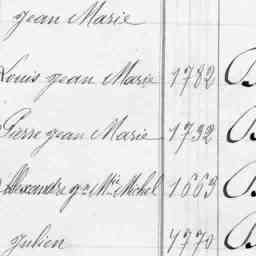 Jean Marie
Louis Jean Marie 1782 B
Pierre Jean Marie 1732 B
Alexandre Jn Mie Michel 1663 B
Julien 4770 B